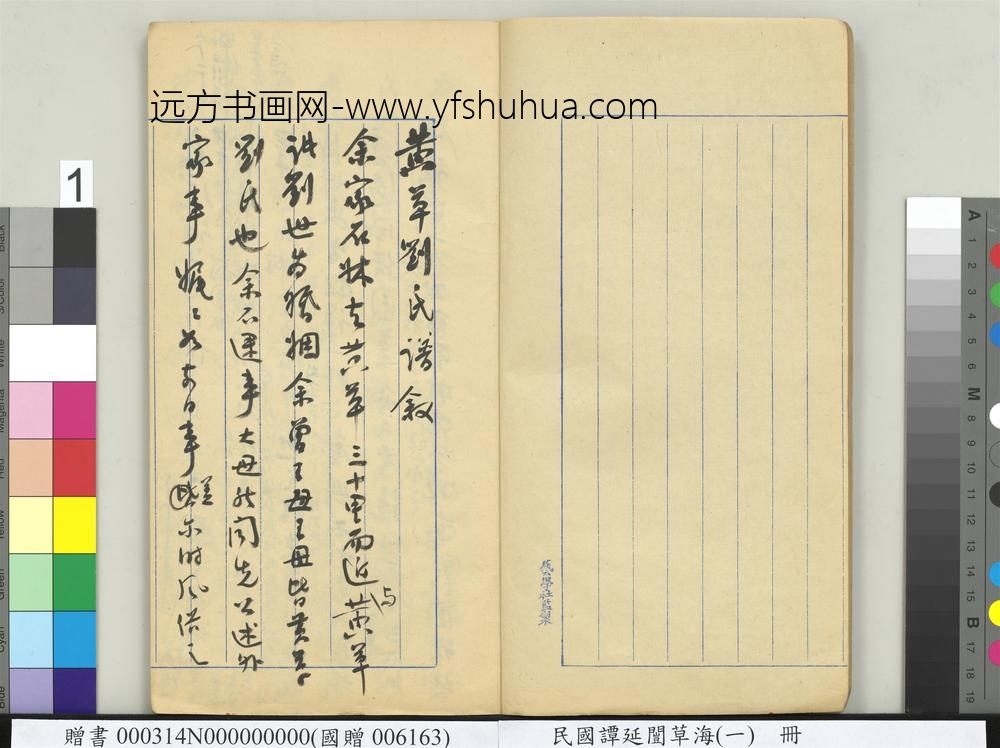 远方书画网-www.yfshuhua.com
黄草劉氏譜敘
余家石牀去黄草三十里而近與黄草
諸劉世为婚姻余曾王母王母皆黄草
劉氏也余不逮事大母然聞先公述外
家事娓々如前日事蓋尔时風俗之
茂學社監製
1
贈書 000314N000000000(國贈 006163)
民國譚延闓草海(一) 冊
Black
3/Color
White
Magenta
Red
Yellow
Green
Cyan
Blue
A 1 2 3 4 5 6 M 8 9 10 11 12 13 14 15 B 17 18 19